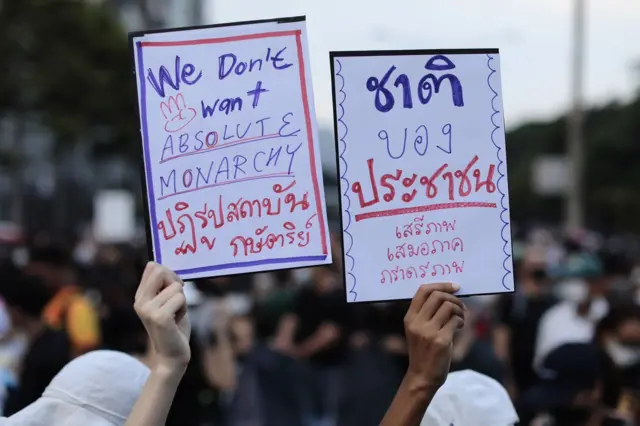 We Don't
want
ABSOLUTE
MONARCHY
ปฏิรูปสถาบัน
กษัตริย์
ชาติ
ของ
ประชาชน
เสรีภาพ
เสมอภาค
ภราดรภาพ